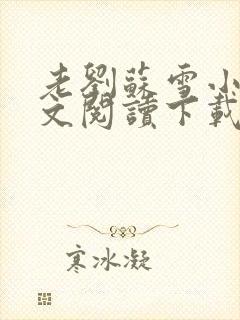 老劉蘇雪小
文閱讀下載
寒冰凝